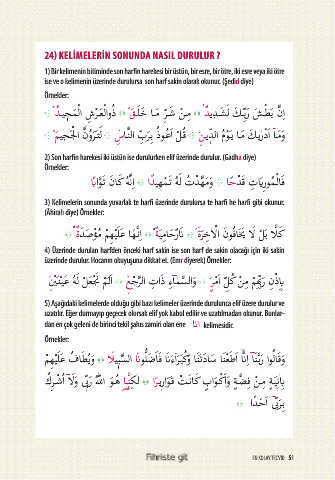 24) KELİMELERİN SONUNDA NASIL DURULUR ?
1) Bir kelimenin bitiminde son harfin harekesi bir üstün, bir esre, bir ötre, iki esre veya iki ötre
ise ve o kelimenin üzerinde durulursa son harf sakin olarak okunur. (Şedid diye)
Örnekler:
اِنَّ بَطْشَ رَبِّكَ لَشَدٖيدٌ ﴿﴾ مِنْ شَرِّ مَا خَلَقَ ﴿﴾ ذُوالْعَرْشِ الْمَجٖيدُ ﴿﴾
وَمَٓا اَدْرٰيكَ مَا يَوْمُ الدّٖينِ ﴿﴾ قُلْ اَعُوذُ بِرَبِّ النَّاسِ ﴿﴾ لَتَرَوُنَّ الْجَحٖيمَ ﴿﴾
2) Son harfin harekesi iki üstün ise durulurken elif üzerinde durulur. (Gadha diye)
Örnekler:
فَالْمُورِيَاتِ قَدْحًا ﴿﴾ وَمَهَّدْتُ لَهُ تَمْهٖيدًا ﴿﴾ اِنَّهُ كَانَ تَوَّابًا
3) Kelimelerin sonunda yuvarlak te harfi üzerinde durulursa te harfi he harfi gibi okunur.
(Âhirah diye) Örnekler:
كَلَّا بَلْ لَا يَخَافُونَ الْاٰخِرَةَ ﴿﴾ نَارٌحَامِيَةٌ ﴿﴾ اِنَّهَا عَلَيْهِمْ مُؤْصَدَةٌ ﴿﴾
4) Üzerinde durulan harfden önceki harf sakin ise son harf de sakin olacağı için iki sakin
üzerinde durulur. Hocanın okuyuşuna dikkat et. (Emr diyerek) Örnekler:
بِاِذْنِ رَبِّهِمْ مِنْ كُلِّ اَمْرٍ ﴿﴾ وَالسَّمَٓاءِ ذَاتِ الرَّجْعِ ﴿﴾ اَلَمْ نَجْعَلْ لَهُ عَيْنَيْنِ
5) Aşağıdaki kelimelerde olduğu gibi bazı kelimeler üzerinde durulunca elif üzere durulur ve
uzatılır. Eğer durmayıp geçecek olursak elif yok kabul edilir ve uzatılmadan okunur. Bunlar-
dan en çok geleni de birinci tekil şahıs zamiri olan ene اَنَا kelimesidir.
Örnekler:
وَقَالُوا رَبَّنَٓا اِنَّٓا اَطَعْنَا سَادَتَنَا وَكُبَرَٓاءَنَا فَاَضَلُّونَا السَّبٖيلَا ﴿﴾ وَيُطَافُ عَلَيْهِمْ
بِاٰنِيَةٍ مِنْ فِضَّةٍ وَاَكْوَابٍ كَانَتْ قَوَارٖيرَا ﴿﴾ لٰكِنَّا هُوَ اللّٰهُ رَبّٖى وَلَٓا اُشْرِكُ
بِرَبّٖٓى اَحَدًا ﴿﴾
Fihriste git
51